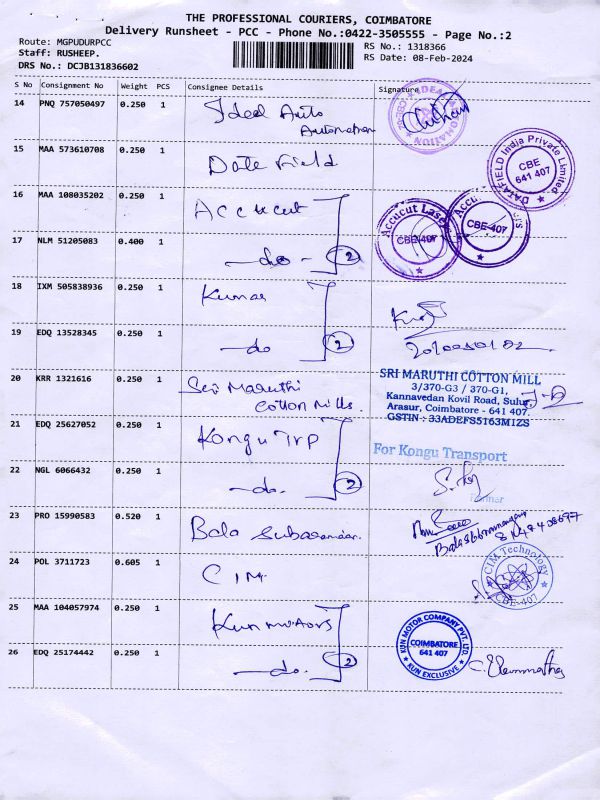 THE PROFESSIONAL COURIERS, COIMBATORE
Delivery Runsheet - PCC - Phone No.:0422-3505555 - Page No.:2
Route: MGPUDURPCC
RS No.: 1318366
Staff: RUSHEEP.
RS Date: 08-Feb-2024
DRS No.: DCJB131836602
S No Consignment No Weight PCS Consignee Details Signature
14 PNQ 757050497 0.250 1 Ideal Auto
Automation
15 MAA 573610708 0.250 1 Date Field
DATAFIELD India Private Limited
CBE
641 407
16 MAA 108035202 0.250 1 Accucut
Accucut Laser
CBE-407
CBE-407
17 NLM 51205083 0.400 1 -do- 2
18 IXM 505838936 0.250 1 Kumar
19 EDQ 13528345 0.250 1 -do 2
20 KRR 1321616 0.250 1 Sri Maruthi
Cotton Mills.
SRI MARUTHI COTTON MILL
3/370-G3 / 370-G1,
Kannavedan Kovil Road, Sulur,
Arasur, Coimbatore - 641 407.
GSTIN : 33ADEFS5163M1ZS
21 EDQ 25627052 0.250 1 Kongu Trp
For Kongu Transport
22 NGL 6066432 0.250 1 -do. 2
23 PRO 15990583 0.520 1 Bala
24 POL 3711723 0.605 1 CIM
CIM Technology
CBE-407
25 MAA 104057974 0.250 1 Kun Motors
KUN MOTOR COMPANY PVT. LTD.
COIMBATORE
641 407
KUN EXCLUSIVE
26 EDQ 25174442 0.250 1 -do. 2